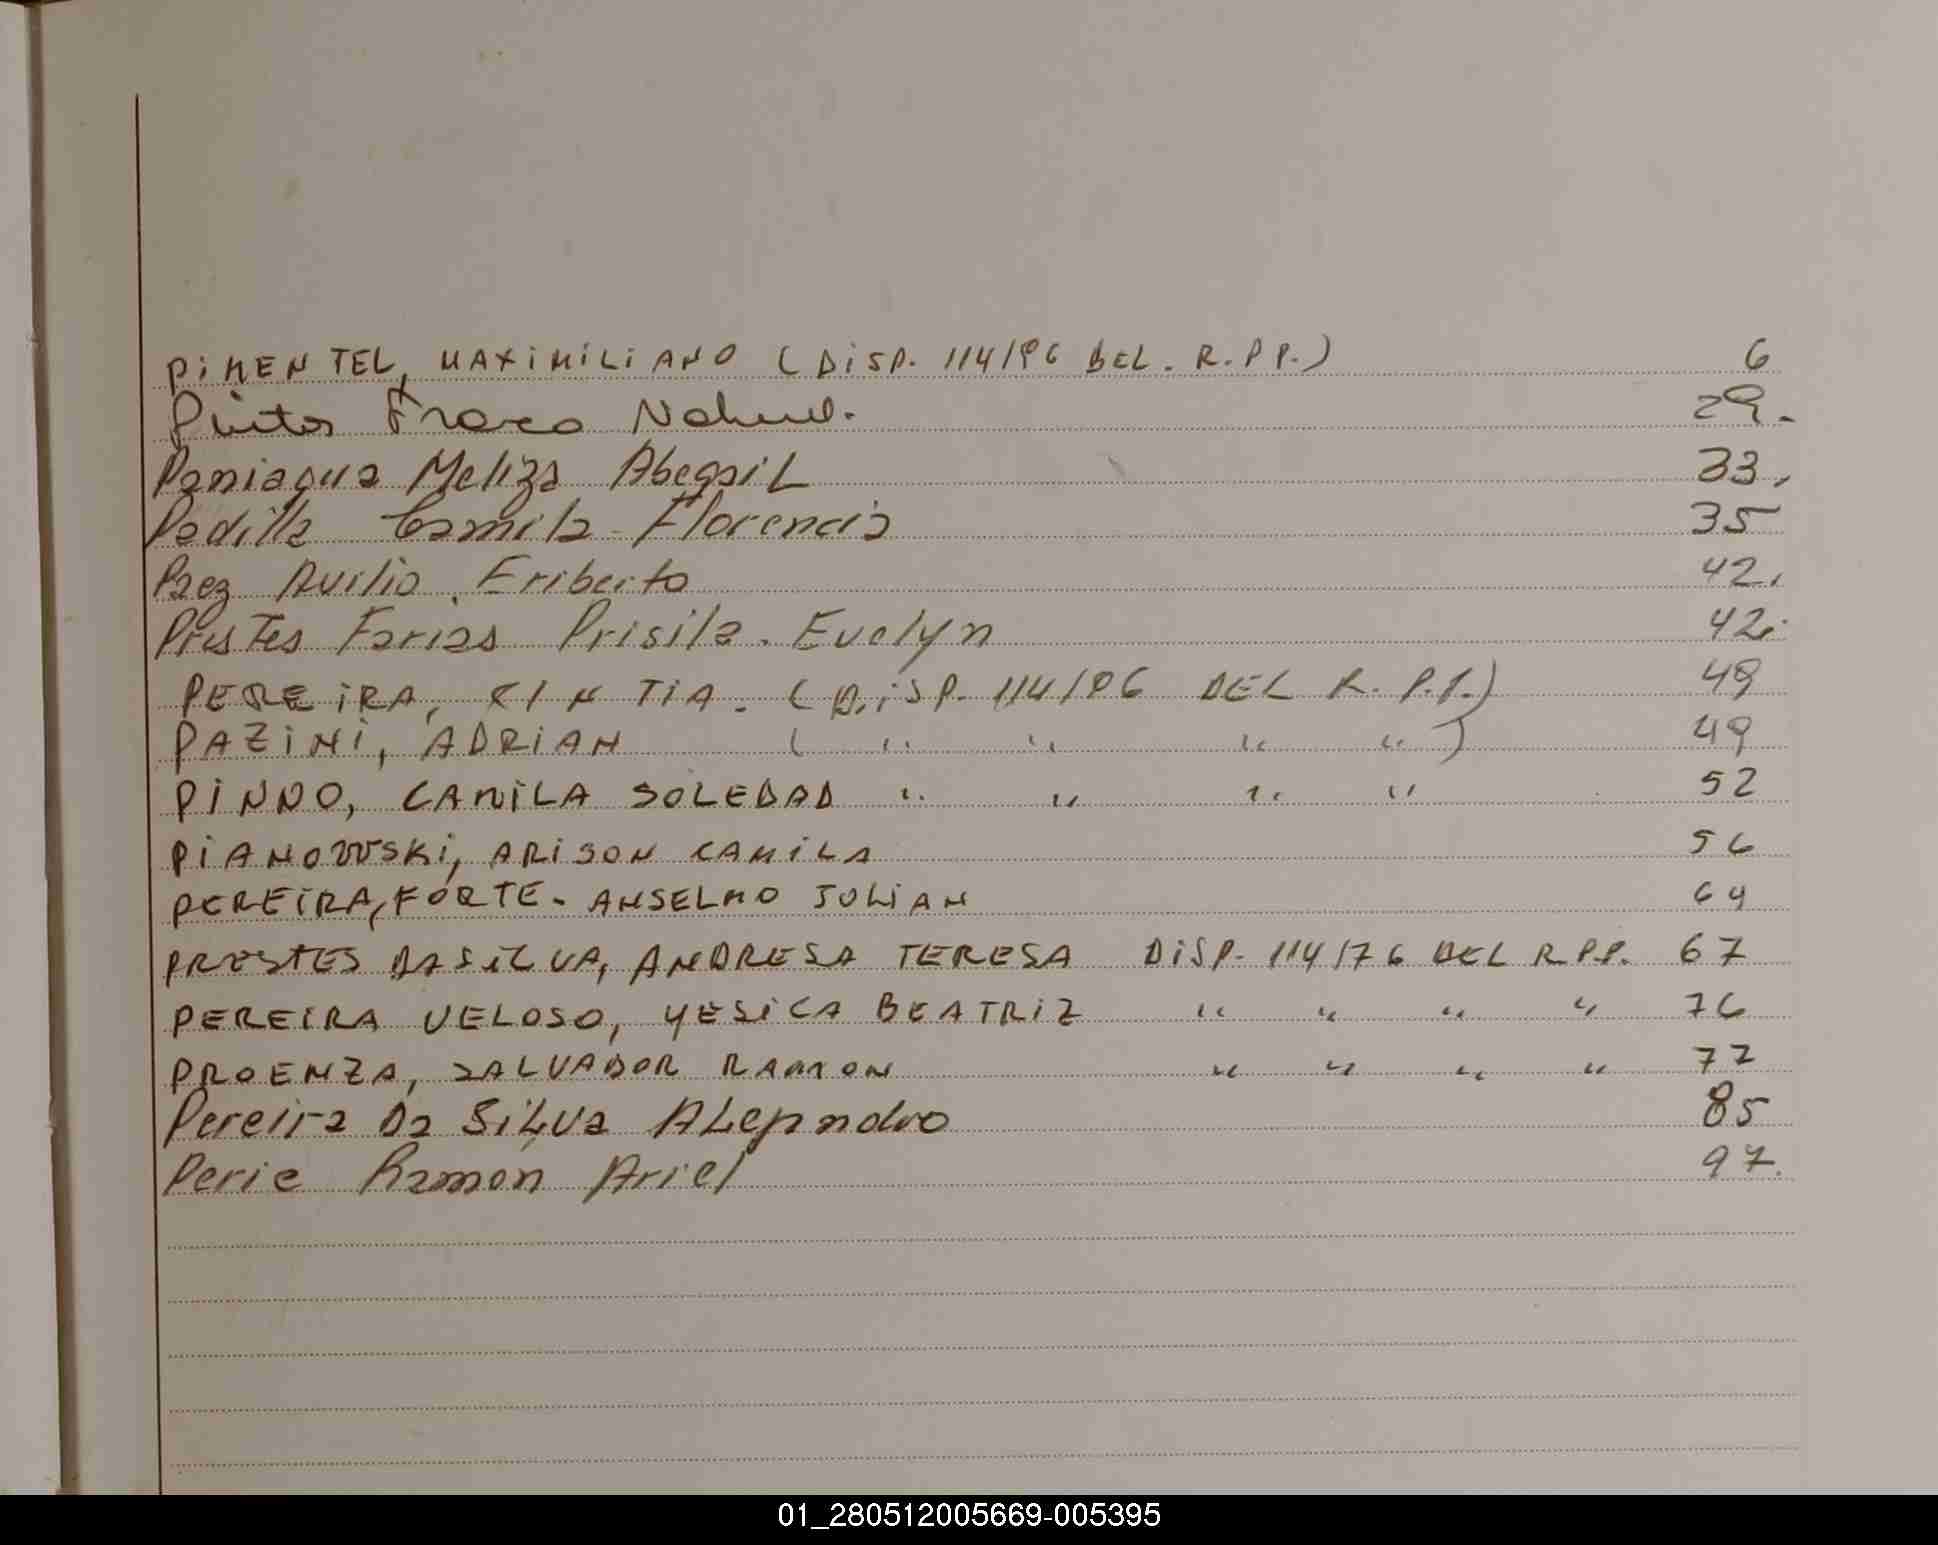 PIMENTEL, MAXIMILIANO (DISP. 114/96 DEL. R.P.P.) 6
Pintos Franco Nahuel. 29.
Paniagua Meliza Abegail 33.
Padilla Camila Florencia 35
Paez Avilio. Eriberto 42.
Prestes Farias Prisila. Evelyn 42.
PEREIRA, CINTIA. (DISP. 114/96 DEL R. P.P.) 49
PAZINI, ADRIAN ( " " " " ) 49
PINNO, CAMILA SOLEDAD " " " " 52
PIANOWSKI, ARISON CAMILA 56
PEREIRA, FORTE - ANSELMO JULIAN 64
PRESTES DASILVA, ANDRESA TERESA DISP. 114/76 DEL R.P.P. 67
PEREIRA VELOSO, YESICA BEATRIZ " " " " 76
PROENZA, SALVADOR RAMON " " " " 77
Pereira Da Silva Alejandro 85
Perie Ramon Ariel 97.
01_280512005669-005395